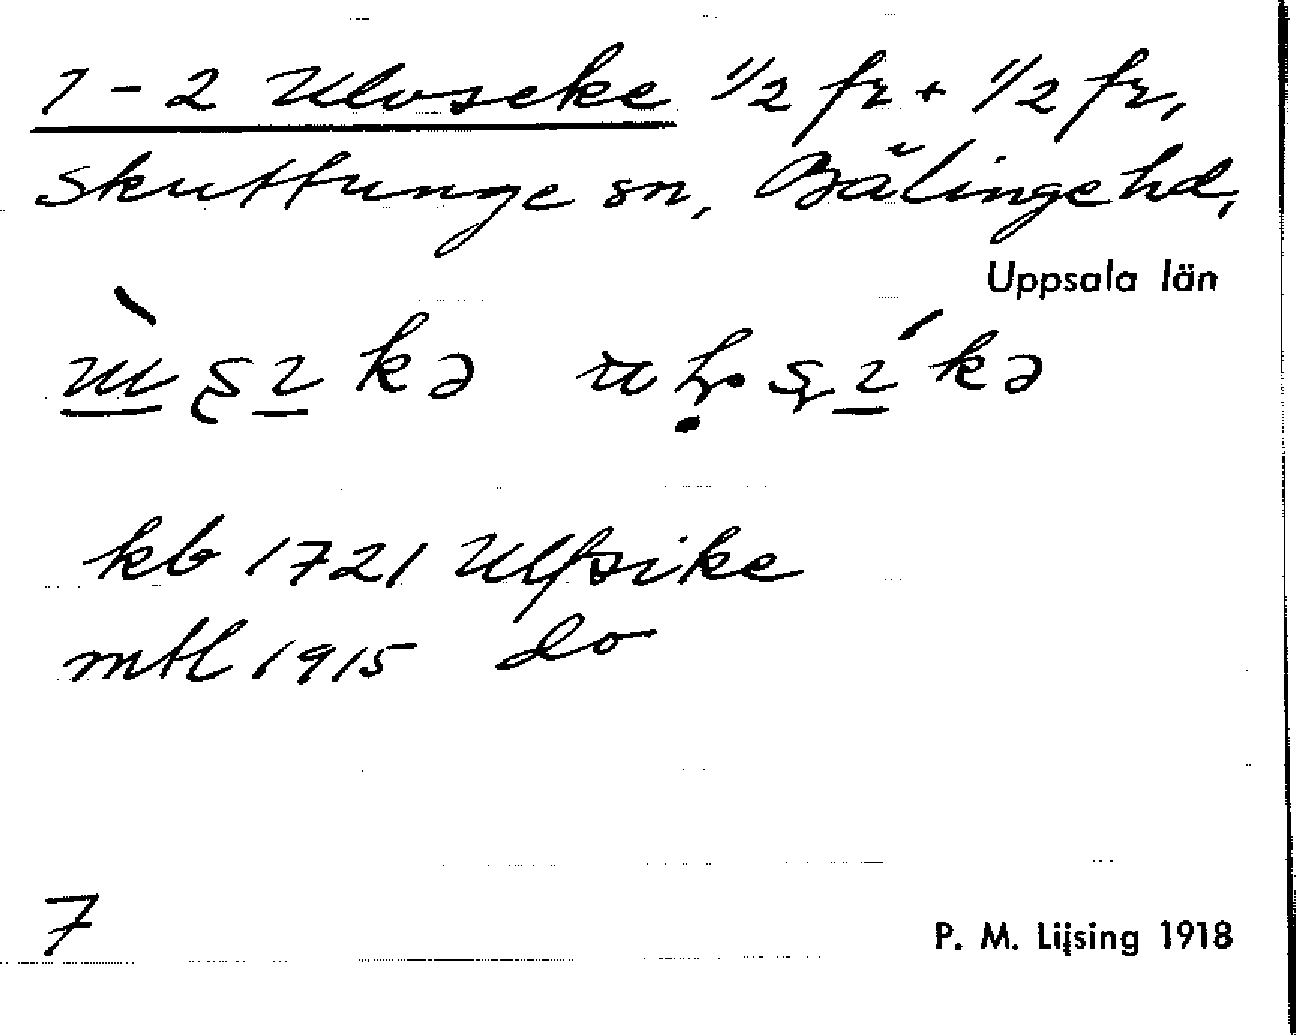 1-2 Ulvseke 1/2 fr + 1/2 fr,
Skuttunge sn, Bälinge hd,
Uppsala län
kb 1721 Ulfsike
mtl 1915 do
7
P. M. Lijsing 1918